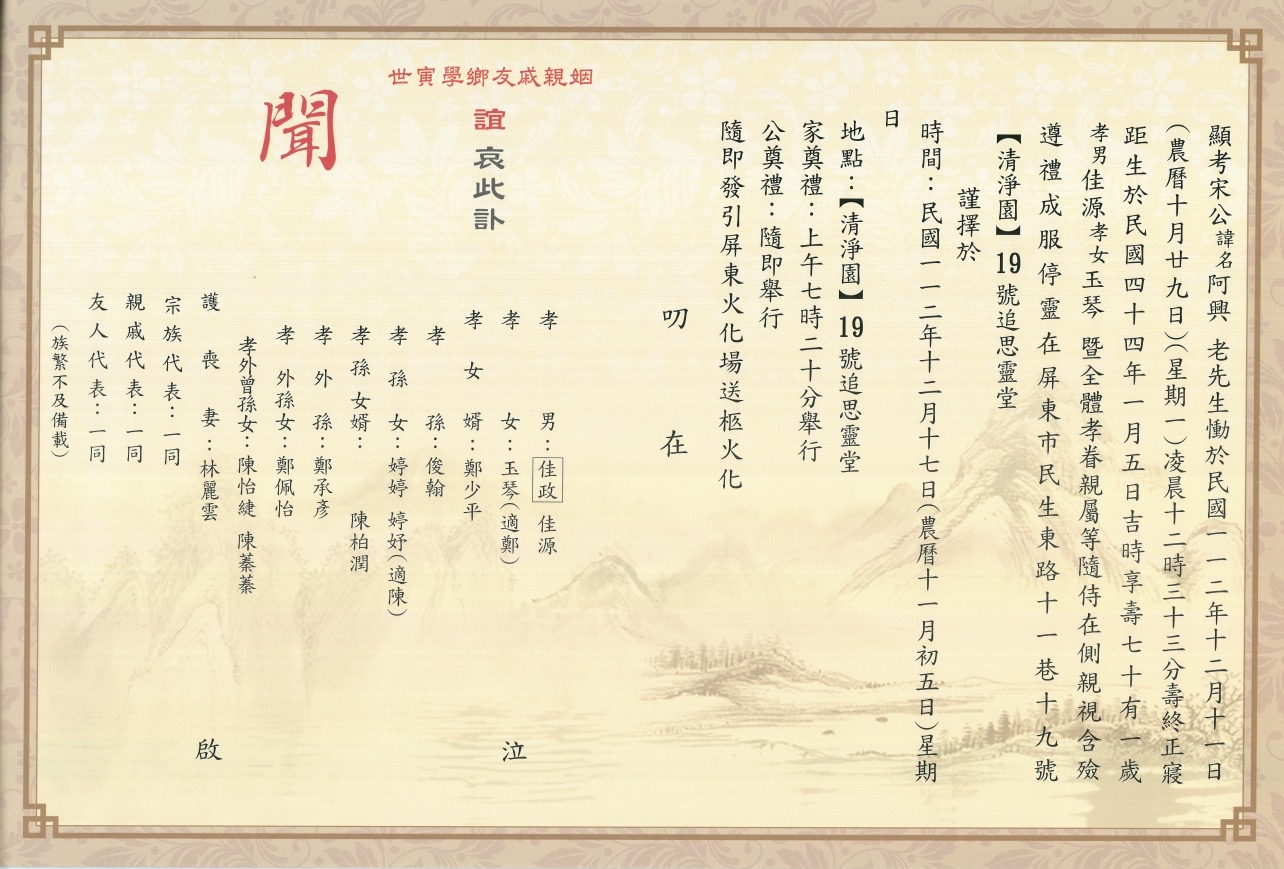 顯考宋公諱名阿興 老先生慟於民國一一二年十二月十一日
(農曆十月廿九日)(星期一)凌晨十二時三十三分壽終正寢
距生於民國四十四年一月五日吉時享壽七十有一歲
孝男佳源孝女玉琴 暨全體孝眷親屬等隨侍在側親視含殮
遵禮成服停靈在屏東市民生東路十一巷十九號
【清淨園】19號追思靈堂
謹擇於
時間:民國一一二年十二月十七日(農曆十一月初五日)星期
日
地點:【清淨園】19號追思靈堂
家奠禮:上午七時二十分舉行
公奠禮:隨即舉行
隨即發引屏東火化場送柩火化
叨在
姻親戚友鄉學寅世
誼哀此訃
聞
孝男:佳政 佳源
孝女:玉琴(適鄭)
孝女婿:鄭少平
孝孫:俊翰
孝孫女:婷婷 婷妤(適陳)
孝孫女婿: 陳柏潤
孝外孫:鄭承彥
孝外孫女:鄭佩怡
孝外曾孫女:陳怡緁 陳蓁蓁
護喪妻:林麗雲
宗族代表:一同
親戚代表:一同
友人代表:一同
(族繁不及備載)
泣
啟